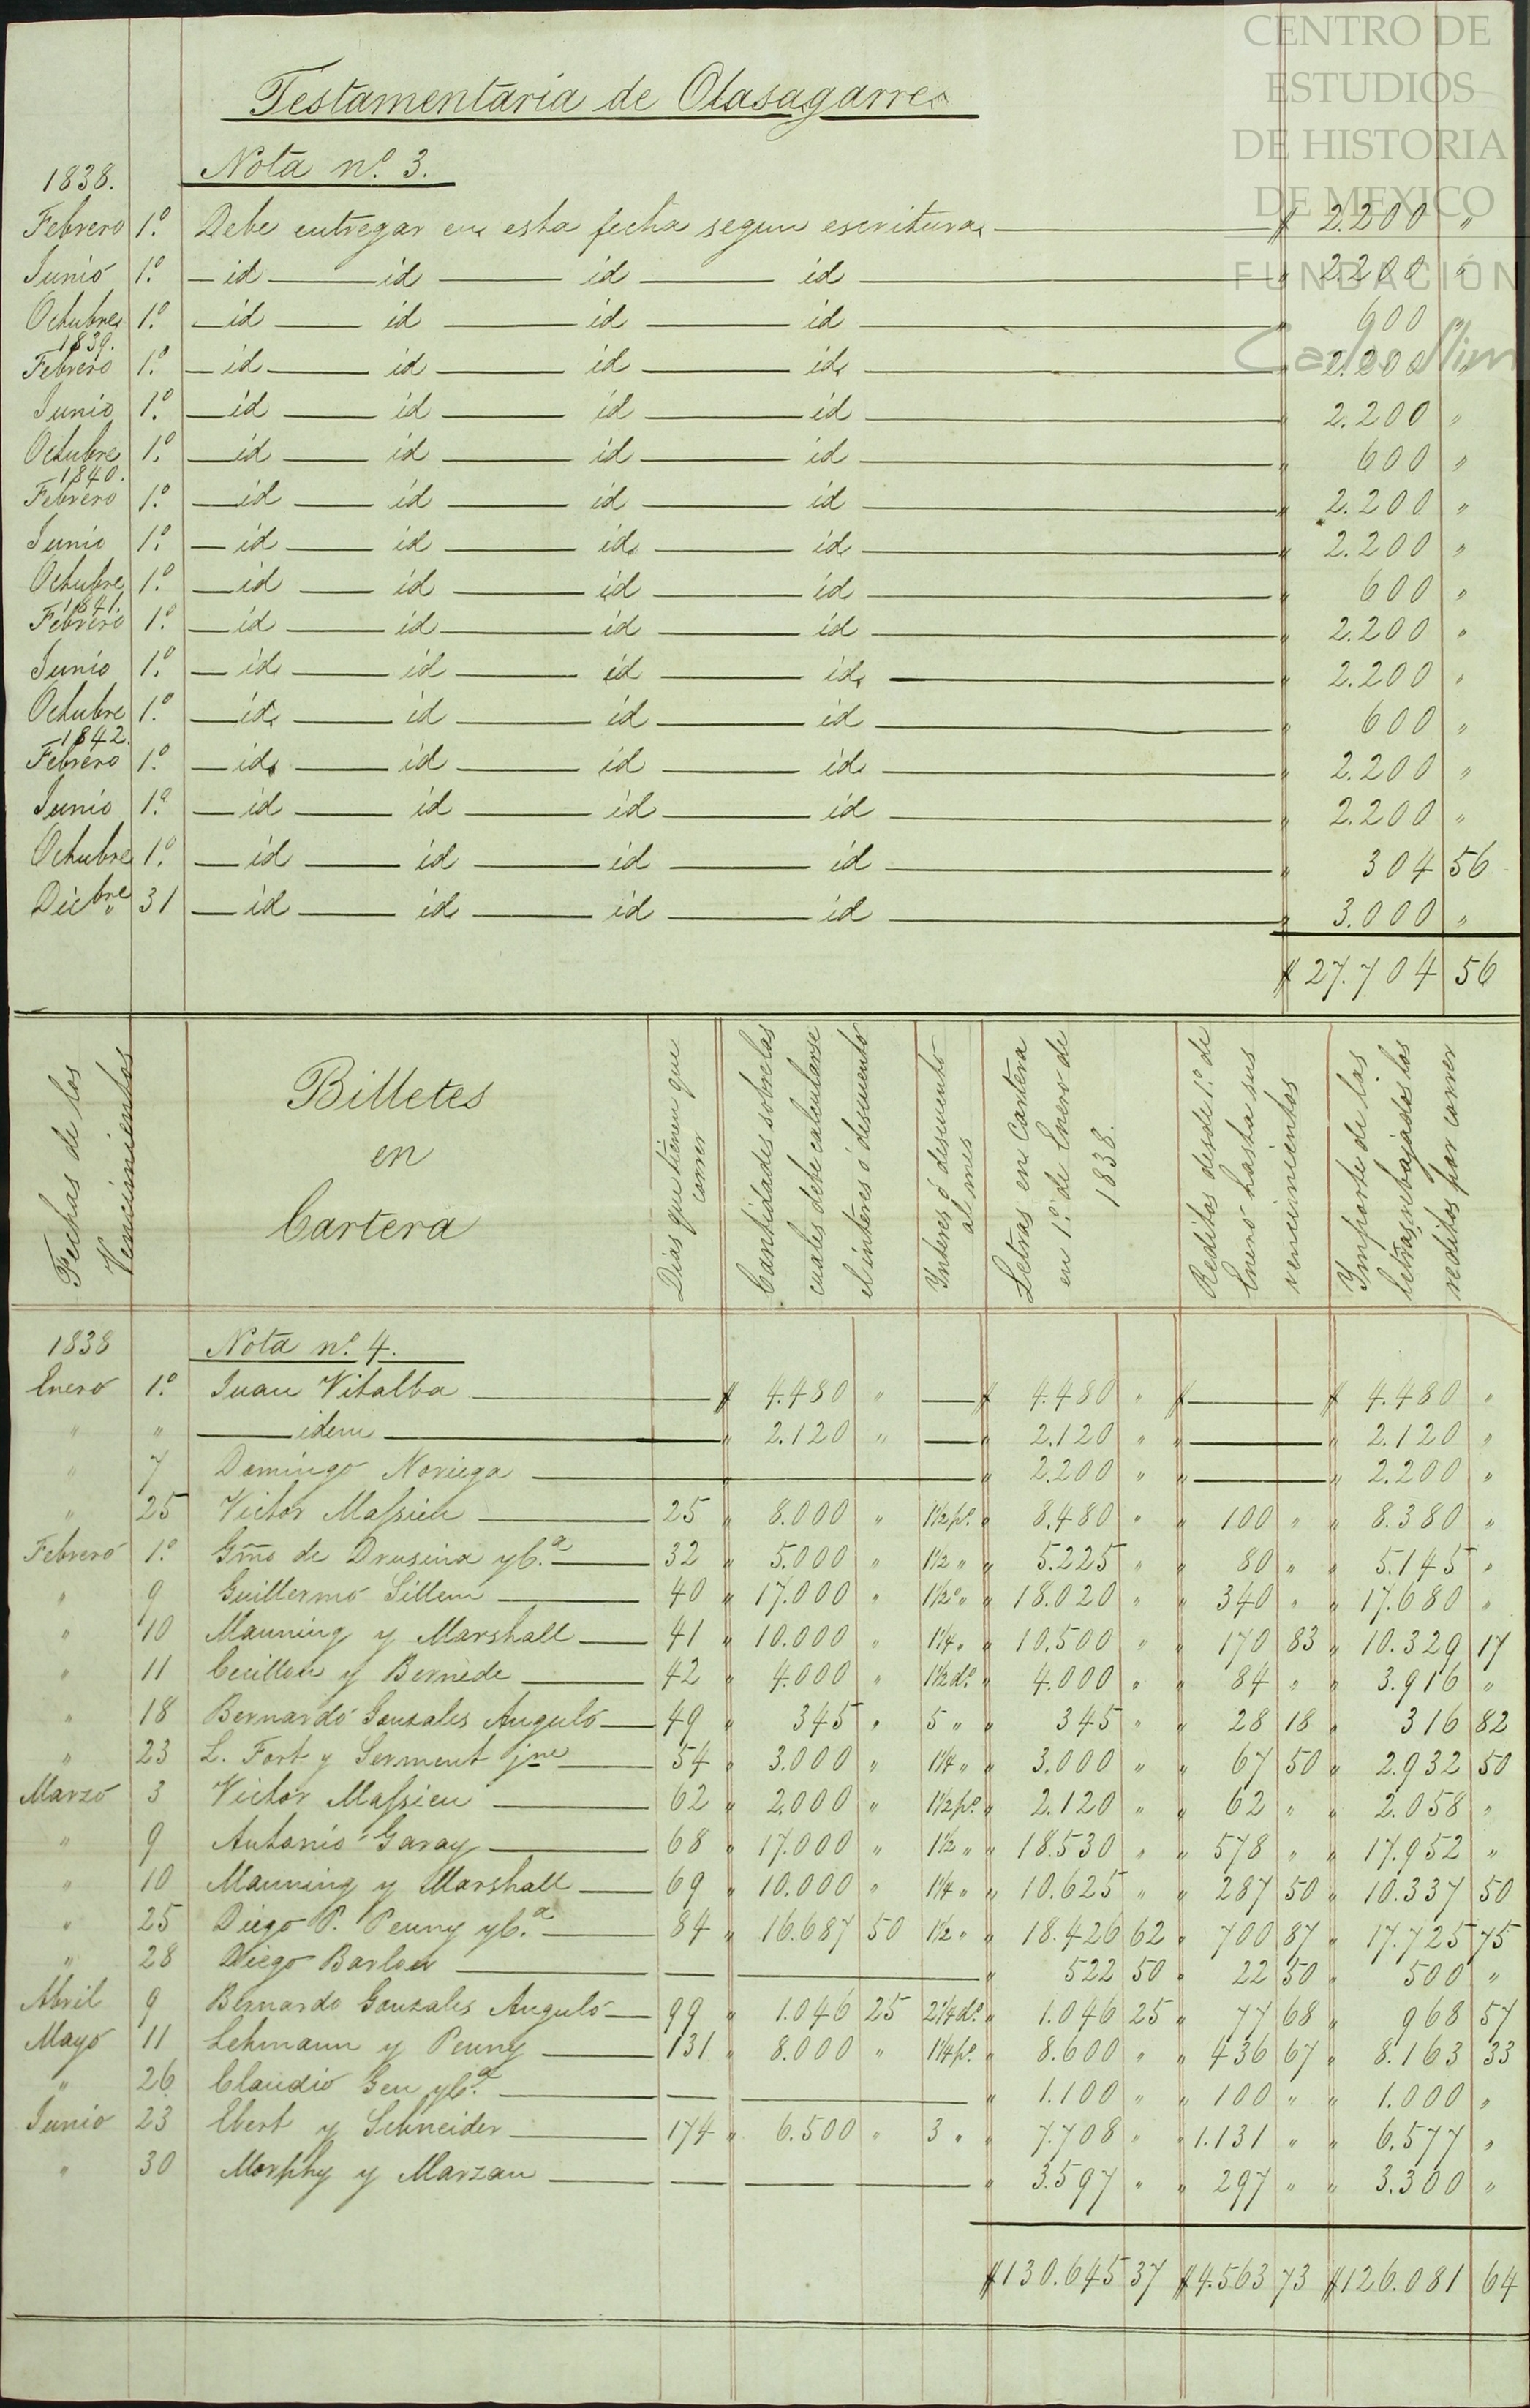 CENTRO DE
ESTUDIOS
DE HISTORIA
DE MEXICO
FUNDACIÓN
Carlos Slim
Testamentaria de Olasagarre
Nota nº 3.
1838.
Febrero 1º Debe entregar en esta fecha segun escritura $ 2.200 "
Junio 1º id id id id " 2.200 "
Octubre 1º id id id id " 600 "
1839.
Febrero 1º id id id id " 2.200 "
Junio 1º id id id id " 2.200 "
Octubre 1º id id id id " 600 "
1840.
Febrero 1º id id id id " 2.200 "
Junio 1º id id id id " 2.200 "
Octubre 1º id id id id " 600 "
1841.
Febrero 1º id id id id " 2.200 "
Junio 1º id id id id " 2.200 "
Octubre 1º id id id id " 600 "
1842.
Febrero 1º id id id id " 2.200 "
Junio 1º id id id id " 2.200 "
Octubre 1º id id id id " 304 56
Dicbre 31 id id id id " 3.000 "
$ 27.704 56
Fechas de los
Vencimientos
Billetes
en
Cartera
Dias que tienen que
correr
Cantidades sobre las
cuales debe calcularse
el interes ó descuento
Interes ó descuento
al mes
Letras en Cartera
en 1º de Enero de
1838.
Reditos desde 1º de
Enero hasta sus
vencimientos
Importe de las
letras, rebajados los
reditos por correr
1838 Nota nº 4.
Enero 1º Juan Vitalba $ 4.480 " $ 4.480 " $ $ 4.480 "
" " idem " 2.120 " " 2.120 " " " 2.120 "
" 7 Domingo Noriega " 2.200 " " " 2.200 "
" 25 Victor Massieu 25 " 8.000 " 1½ pº " 8.480 " " 100 " " 8.380 "
Febrero 1º Gmo de Drusina y Cª 32 " 5.000 " 1½ " " 5.225 " " 80 " " 5.145 "
" 9 Guillermo Sillem 40 " 17.000 " 1½ " " 18.020 " " 340 " " 17.680 "
" 10 Manning y Marshall 41 " 10.000 " 1¼ " " 10.500 " " 170 83 " 10.329 17
" 11 Cuillon y Bernede 42 " 4.000 " 1½ dº " 4.000 " " 84 " " 3.916 "
" 18 Bernardo Gonzales Angulo 49 " 345 " 5 " " 345 " " 28 18 " 316 82
" 23 L. Fort y Serment jne 54 " 3.000 " 1¼ " " 3.000 " " 67 50 " 2.932 50
Marzo 3 Victor Massieu 62 " 2.000 " 1½ pº " 2.120 " " 62 " " 2.058 "
" 9 Antonio Garay 68 " 17.000 " 1½ " " 18.530 " " 578 " " 17.952 "
" 10 Manning y Marshall 69 " 10.000 " 1¼ " " 10.625 " " 287 50 " 10.337 50
" 25 Diego P. Penny y Cª 84 " 16.687 50 1½ " " 18.426 62 " 700 87 " 17.725 75
" 28 Diego Barlow " 522 50 " 22 50 " 500 "
Abril 9 Bernardo Gonzales Angulo 99 " 1.046 25 2¼ dº " 1.046 25 " 77 68 " 968 57
Mayo 11 Lehmann y Penny 131 " 8.000 " 1¼ pº " 8.600 " " 436 67 " 8.163 33
" 26 Claudio Gen y Cª " 1.100 " " 100 " " 1.000 "
Junio 23 Ebert y Schneider 174 " 6.500 " 3 " " 7.708 " " 1.131 " " 6.577 "
" 30 Morphy y Marzan " 3.597 " " 297 " " 3.300 "
$ 130.645 37 $ 4.563 73 $ 126.081 64